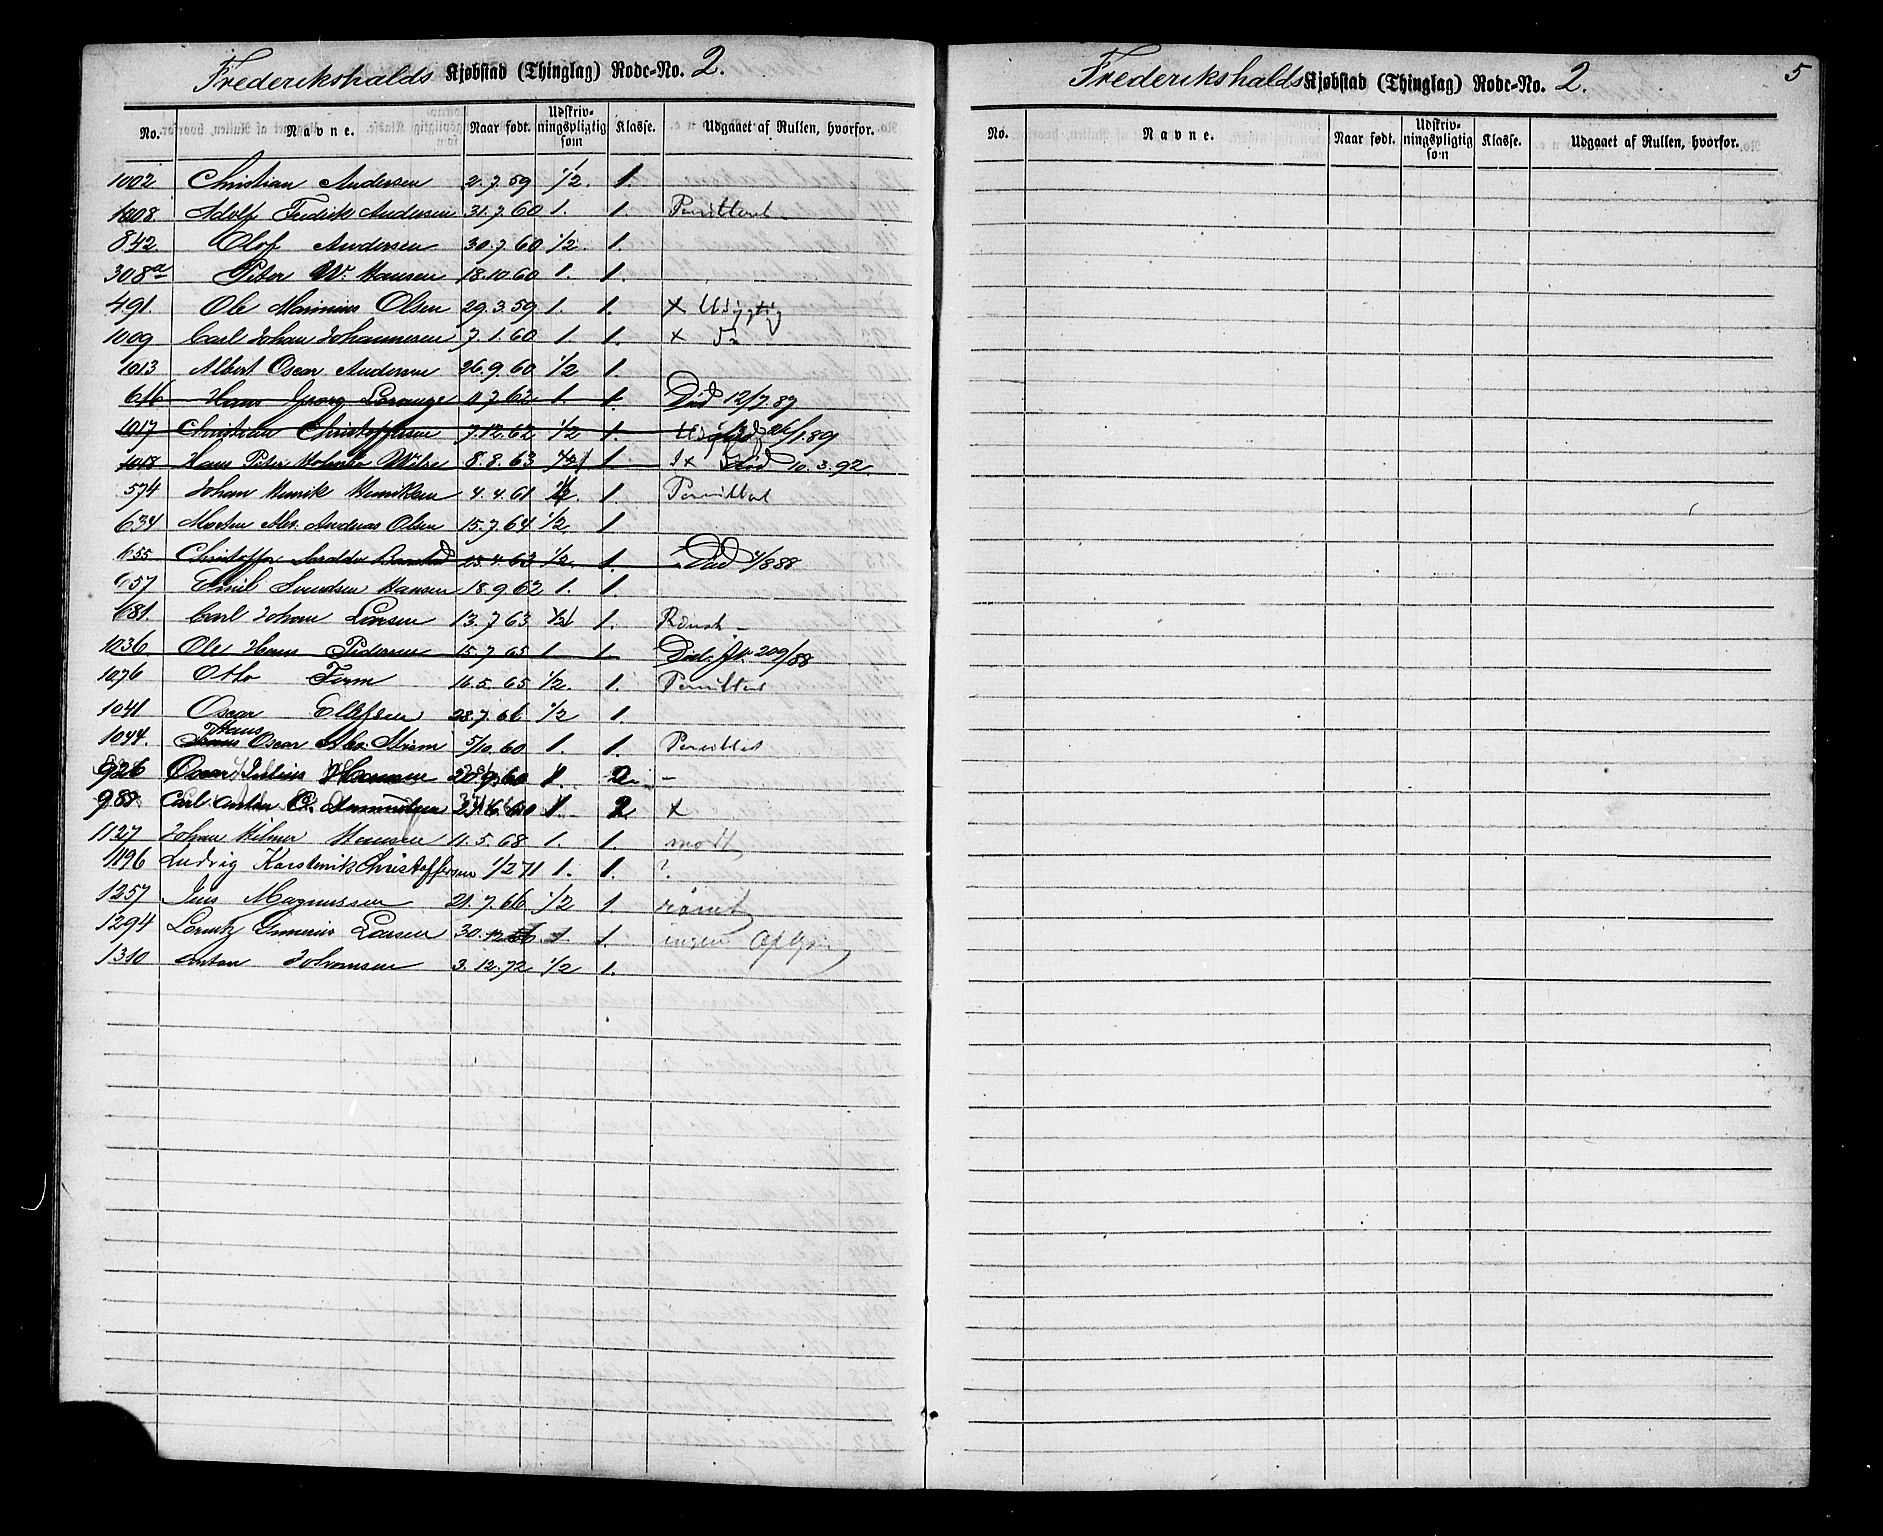 Frederikshalds Kjøbstad (Thinglag) Rode-No. 2.
No. Navne. Naar født. Udskrivningspligtig som Klasse. Udgaaet af Rullen, hvorfor.
1002 Christian Andersen 2.7.59 1/2. 1.
1008 Adolf Fredrik Andersen 31.7.60 1. 1. Permitteret
842 Olof Andersen 30.7.60 1/2. 1.
308a Peter W. Hansen 18.10.60 1. 1.
491. Ole Marinius Olsen 29.3.59 1. 1. x Udygtig
1009 Carl Johan Johannesen 7.1.60 1 1. x
1013 Albert Oscar Andersen 26.9.60 1/2 1.
616 Hans Georg Lorange 7.62 1. 1. Død 12/7.87
1017 Christian Christoffersen 7.12.62 1/2 1. 1.89
1018 Hans Peter Wilse 8.8.63 1. Død 10.3.92.
574 Johan Henrik Henriksen 4.4.61 1/2. 1. Permitteret
634 Morten Andreas Olsen 15.7.64 1/2 1.
655 Christoffer 25.4.63 1/2. 1. Død 4/8 88
657 Emil Svendsen Hansen 18.9.62 1. 1.
681. Carl Johan Larsen 13.7.63 1. Rømt
1036. Ole Hans Pedersen 15.7.65 1 1. Død. 209/88
1076 Otto Ferm 16.5.65 1/2. 1. Permitteret
1041 Oscar Ellefsen 28.7.66 1/2 1
Hans
1044. Oscar Alex. Strøm 5/10.60 1. 1. Permitteret
926 Oscar Julius Hansen 20.9.60 1. 2. –
988 Carl Anton C. 6.60 1. 2 x
1127 Johan Hilmar Hansen 11.5.68 1. 1. mødt
1196 Ludvig Karstenik Christoffersen 1/2 71 1. 1. ?
1257 Jens Magnussen 21.7.66 1/2 1. rømt
1294 Lorentz Gunerius Larsen 30.12.56 1. 1. ingen Oplysn
1310 Anton Johansen 3.12.72 1/2 1.
Frederikshalds Kjøbstad (Thinglag) Rode-No. 2. 5
No. Navne. Naar født. Udskrivningspligtig som Klasse. Udgaaet af Rullen, hvorfor.